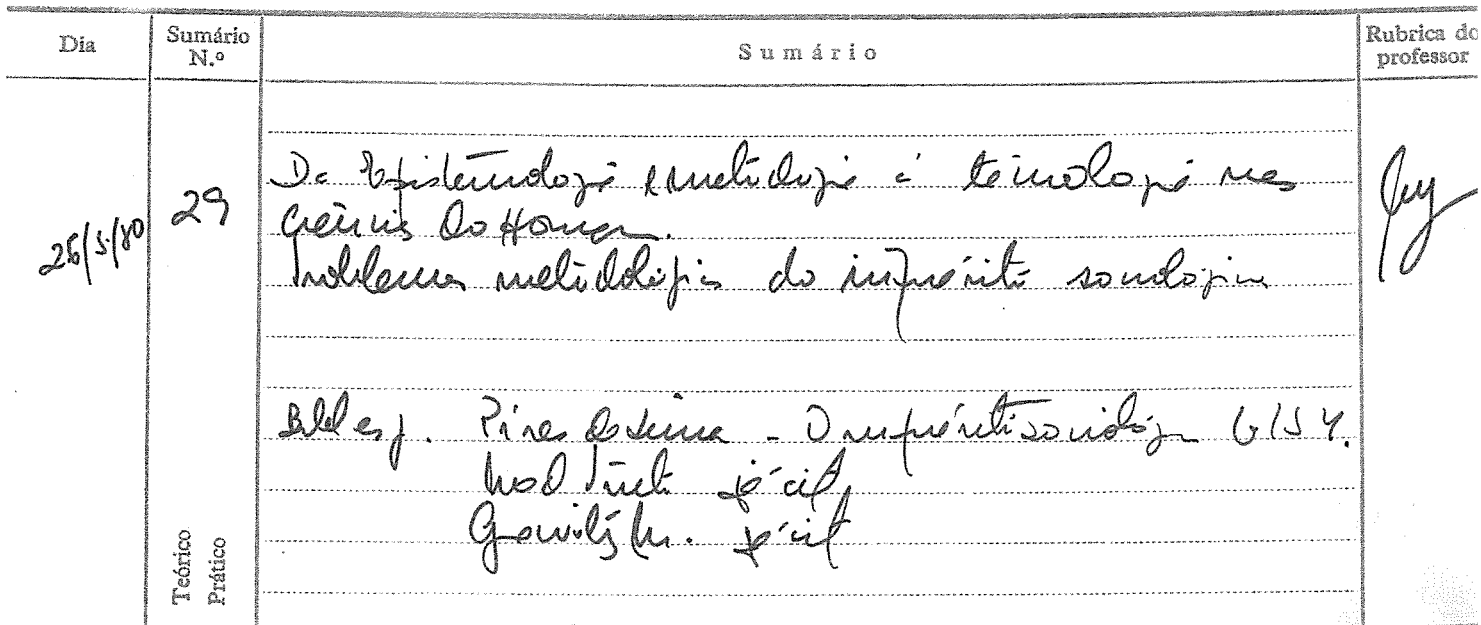 Dia
Sumário N.º
Sumário
Rubrica do professor
29
Da Epistemologia e metodologia à tecnologia nas
Ciências do Homem.
Problemas metodológicos do inquérito sociológico
Pires de Lima - O inquérito sociológico
já cit
já cit
Teórico
Prático